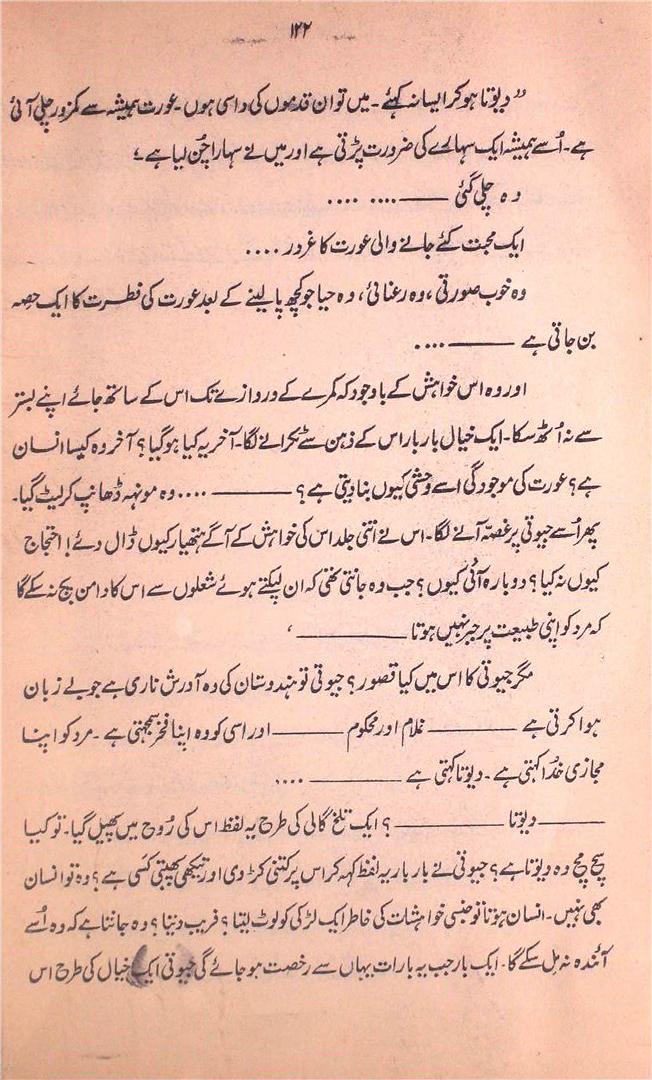 ۱۲۲
”دیوتا ہو کر ایسا نہ کہئے۔ میں تو ان قدموں کی داسی ہوں۔ عورت ہمیشہ سے کمزور چلی آئی
ہے۔ اُسے ہمیشہ ایک سہارے کی ضرورت پڑتی ہے اور میں نے سہارا چُن لیا ہے“
وہ چلی گئی ——— .... ....
ایک محبت کئے جانے والی عورت کا غرور ....
وہ خوب صورتی، وہ رعنائی، وہ حیا جو کچھ پا لینے کے بعد عورت کی فطرت کا ایک حصہ
بن جاتی ہے ——— ....
اور وہ اس خواہش کے باوجود کہ کمرے کے دروازے تک اس کے ساتھ جائے اپنے بستر
سے نہ اُٹھ سکا۔ ایک خیال بار بار اس کے ذہن سے ٹکرانے لگا۔ آخر یہ کیا ہو گیا؟ آخر وہ کیسا انسان
ہے؟ عورت کی موجودگی اسے وحشی کیوں بنا دیتی ہے؟ ——— .... وہ مونہہ ڈھانپ کر لیٹ گیا۔
پھر اُسے جیوتی پر غصّہ آنے لگا۔ اس نے اتنی جلد اس کی خواہش کے آگے ہتھیار کیوں ڈال دئے! احتجاج
کیوں نہ کیا؟ دوبارہ آئی کیوں؟ جب وہ جانتی تھی کہ ان لپکتے ہوئے شعلوں سے اس کا دامن بچ نہ سکے گا
کہ مرد کو اپنی طبیعت پر جبر نہیں ہوتا ——— ،
مگر جیوتی کا اس میں کیا قصور؟ جیوتی تو ہندوستان کی وہ آدرش ناری ہے جو بے زبان
ہوا کرتی ہے ——— غلام اور محکوم ——— اور اسی کو وہ اپنا فخر سمجھتی ہے۔ مرد کو اپنا
مجازی خُدا کہتی ہے۔ دیوتا کہتی ہے ——— ....
——— دیوتا ——— ؟ ایک تلخ گالی کی طرح یہ لفظ اس کی رُوح میں پھیل گیا۔ تو کیا
سچ مچ وہ دیوتا ہے؟ جیوتی نے بار بار یہ لفظ کہہ کر اس پر کتنی کڑوی اور تیکھی پھبتی کسی ہے؟ وہ تو انسان
بھی نہیں۔ انسان ہوتا تو جنسی خواہشات کی خاطر ایک لڑکی کو لوٹ لیتا؟ فریب دیتا؟ وہ جانتا ہے کہ وہ اُسے
آئندہ نہ مل سکے گا۔ ایک بار جب یہ بارات یہاں سے رخصت ہو جائے گی جیوتی ایک خیال کی طرح اس